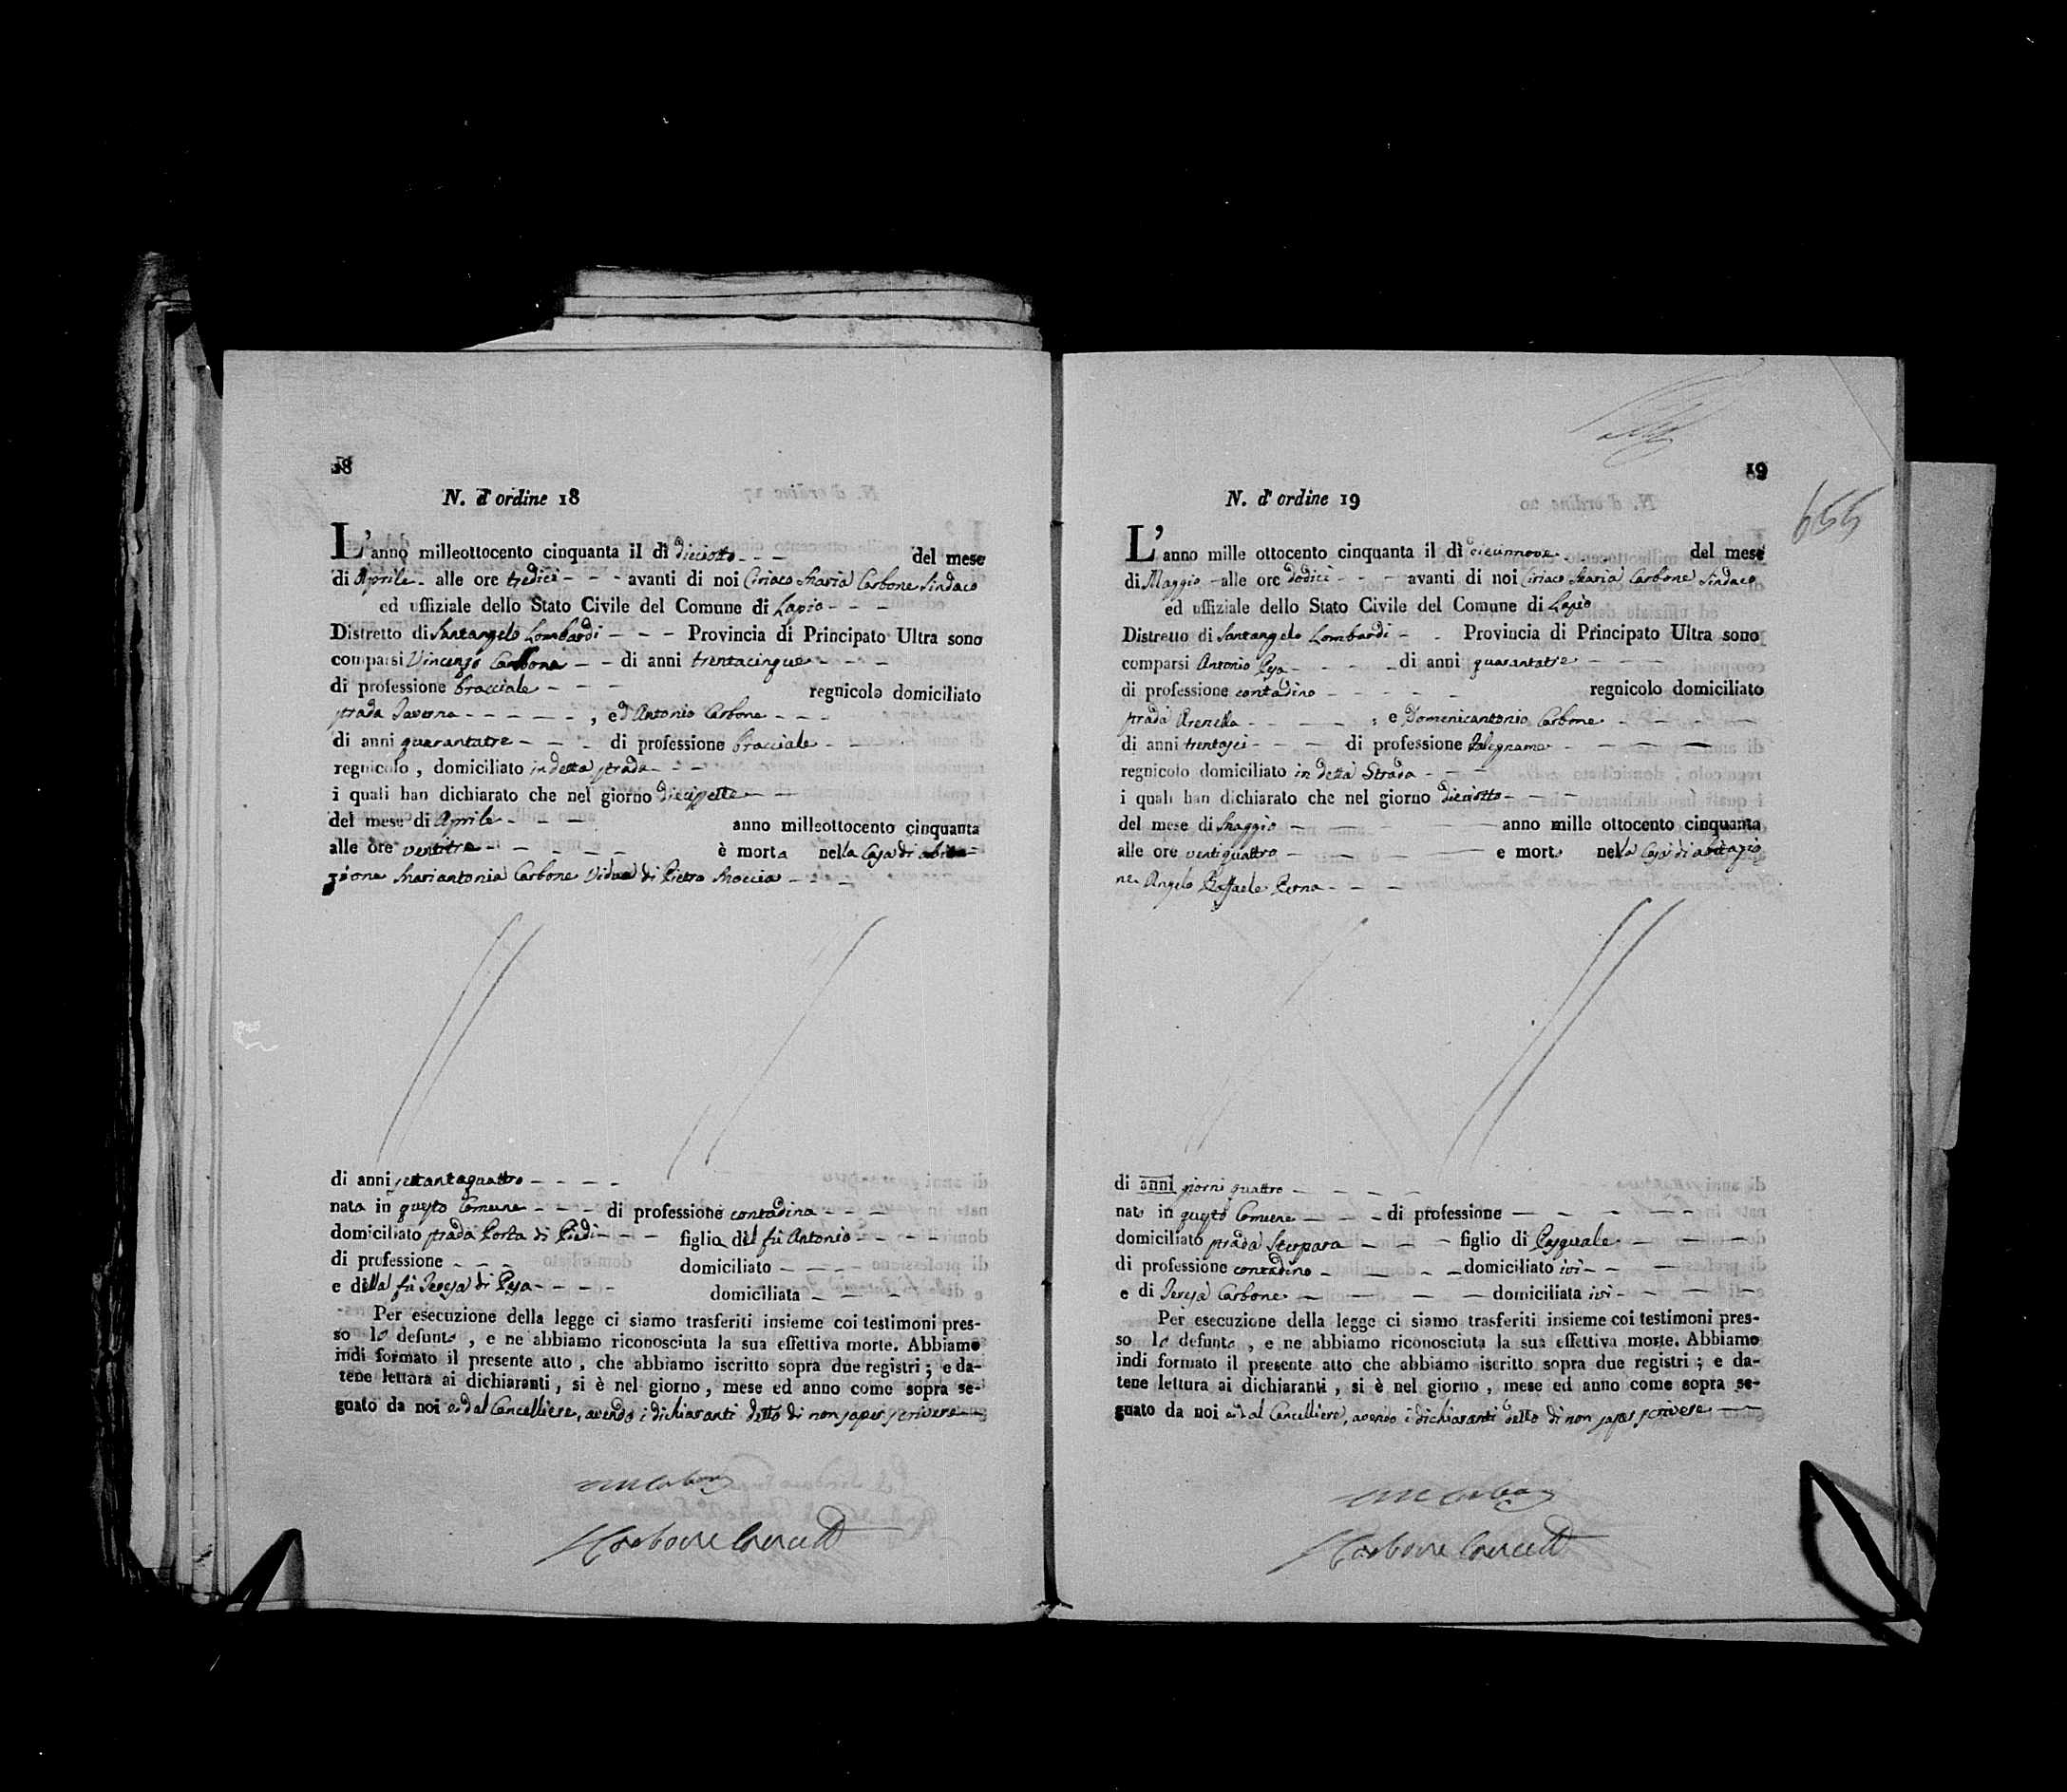 18
N. d'ordine 18
L'anno milleottocento cinquanta il dì dieciotto del mese
di Aprile alle ore tredici avanti di noi Ciriaco Maria Carbone Sindaco
ed uffiziale dello Stato Civile del Comune di Lapio
Distretto di Santangelo Lombardi Provincia di Principato Ultra sono
comparsi Vincenzo Carbone di anni trentacinque
di professione bracciale regnicolo domiciliato
strada Taverna , ed Antonio Carbone
di anni quarantatre di professione bracciale
regnicolo , domiciliato in detta strada
i quali han dichiarato che nel giorno diecisette
del mese di Aprile anno milleottocento cinquanta
alle ore ventitre è morta nella Casa di abita-
zione Mariantonia Carbone Vidua di Pietro Moccia
di anni settantaquattro
nata in questo Comune di professione contadina
domiciliato strada Porta di Piedi figlia del fù Antonio
di professione domiciliato
e della fù Teresa di Pesa domiciliata
Per esecuzione della legge ci siamo trasferiti insieme coi testimoni pres-
so lo defunto , e ne abbiamo riconosciuta la sua effettiva morte. Abbiamo
indi formato il presente atto , che abbiamo iscritto sopra due registri ; e da-
tene lettura ai dichiaranti , si è nel giorno , mese ed anno come sopra se-
gnato da noi e dal Cancelliere, avendo i dichiaranti detto di non saper scrivere
Carbone
19
655
N. d' ordine 19
L'anno mille ottocento cinquanta il dì diecinnove del mese
di Maggio alle ore dodici avanti di noi Ciriaco Maria Carbone Sindaco
ed uffiziale dello Stato Civile del Comune di Lapio
Distretto di Santangelo Lombardi Provincia di Principato Ultra sono
comparsi Antonio Pesa di anni quarantatre
di professione contadino regnicolo domiciliato
strada Arenella , e Domenicantonio Carbone
di anni trentasei di professione Falegname
regnicolo domiciliato in detta Strada
i quali han dichiarato che nel giorno dieciotto
del mese di Maggio anno mille ottocento cinquanta
alle ore ventiquattro e morto nella Casa di abitazio
ne Angelo Raffaele Perna
di anni giorni quattro
nato in questo Comune di professione
domiciliato strada Sterpara figlio di Pasquale
di professione contadino domiciliato ivi
e di Teresa Carbone domiciliata ivi
Per esecuzione della legge ci siamo trasferiti insieme coi testimoni pres-
so lo defunto , e ne abbiamo riconosciuta la sua effettiva morte. Abbiamo
indi formato il presente atto che abbiamo iscritto sopra due registri ; e da-
tene lettura ai dichiaranti , si è nel giorno , mese ed anno come sopra se-
gnato da noi e dal Cancelliere, avendo i dichiaranti detto di non saper scrivere
Carbone